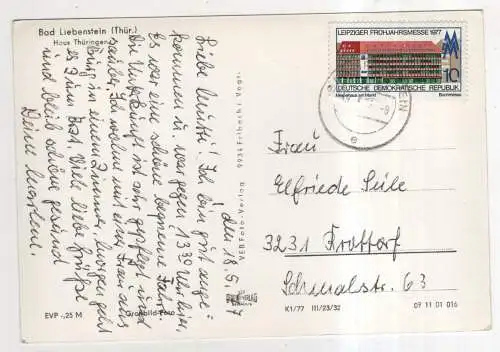 Bad Liebenstein (Thür.)
Haus Thüringen
d. 18. 5. 77
Liebe Mutti! Ich bin gut ange-
kommen u. war gegen 13.30 Uhr hier.
Es war eine schöne bequeme Fahrt.
Die Unterkunft ist sehr gepflegt und
sauber. Ich wohne mit einer Frau aus
in einem Zimmer. Morgen geht
es zum Arzt. Viele liebe Grüße
und bleib schön gesund
Deine
EVP -,25 M
Großbild-Foto
VEB Foto-Verlag
LEIPZIGER FRÜHJAHRSMESSE 1977
MM
10
DEUTSCHE DEMOKRATISCHE REPUBLIK
Messehaus am Markt
Buchmesse
Frau
Elfriede Seile
3231 Frottorf
Schmalstr. 63
K1/77 III/23/32
09 11 01 016